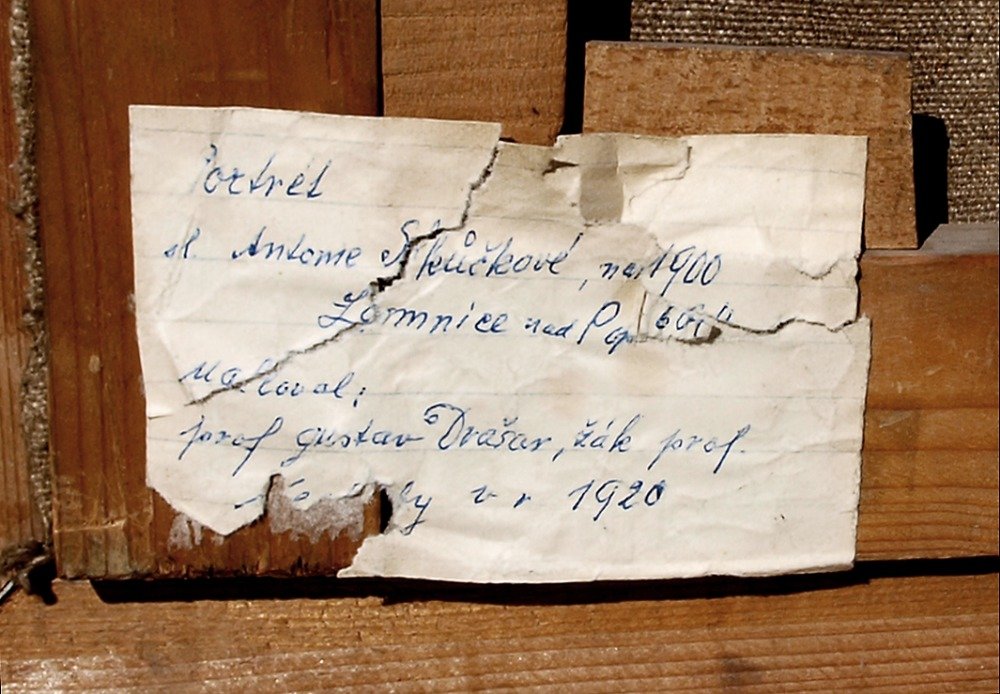 Portrét
sl. Antonie Skůčkové, nar 1900
Lomnice nad Pop
Maloval:
prof gustav Drašar, žák prof.
v r 1920